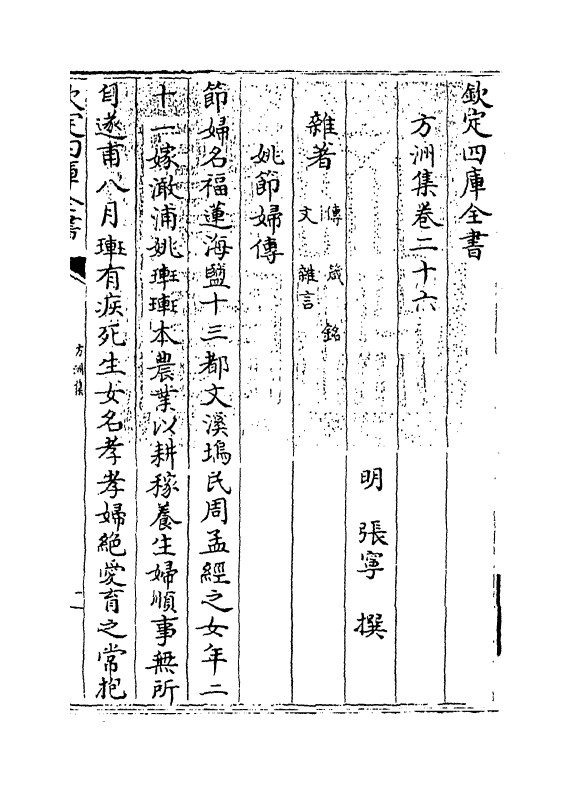 欽定四庫全書
方洲集卷二十六
明 張寧 撰
雜著 傳 箴 銘
文 雜言
姚節婦傳
節婦名福蓮海鹽十三都文溪塢民周孟經之女年二
十一嫁澉浦姚㻞㻞本農業以耕稼養生婦順事無所
自遂甫八月㻞有疾死生女名孝孝婦絶愛育之常抱
欽定四庫全書
方洲集
一